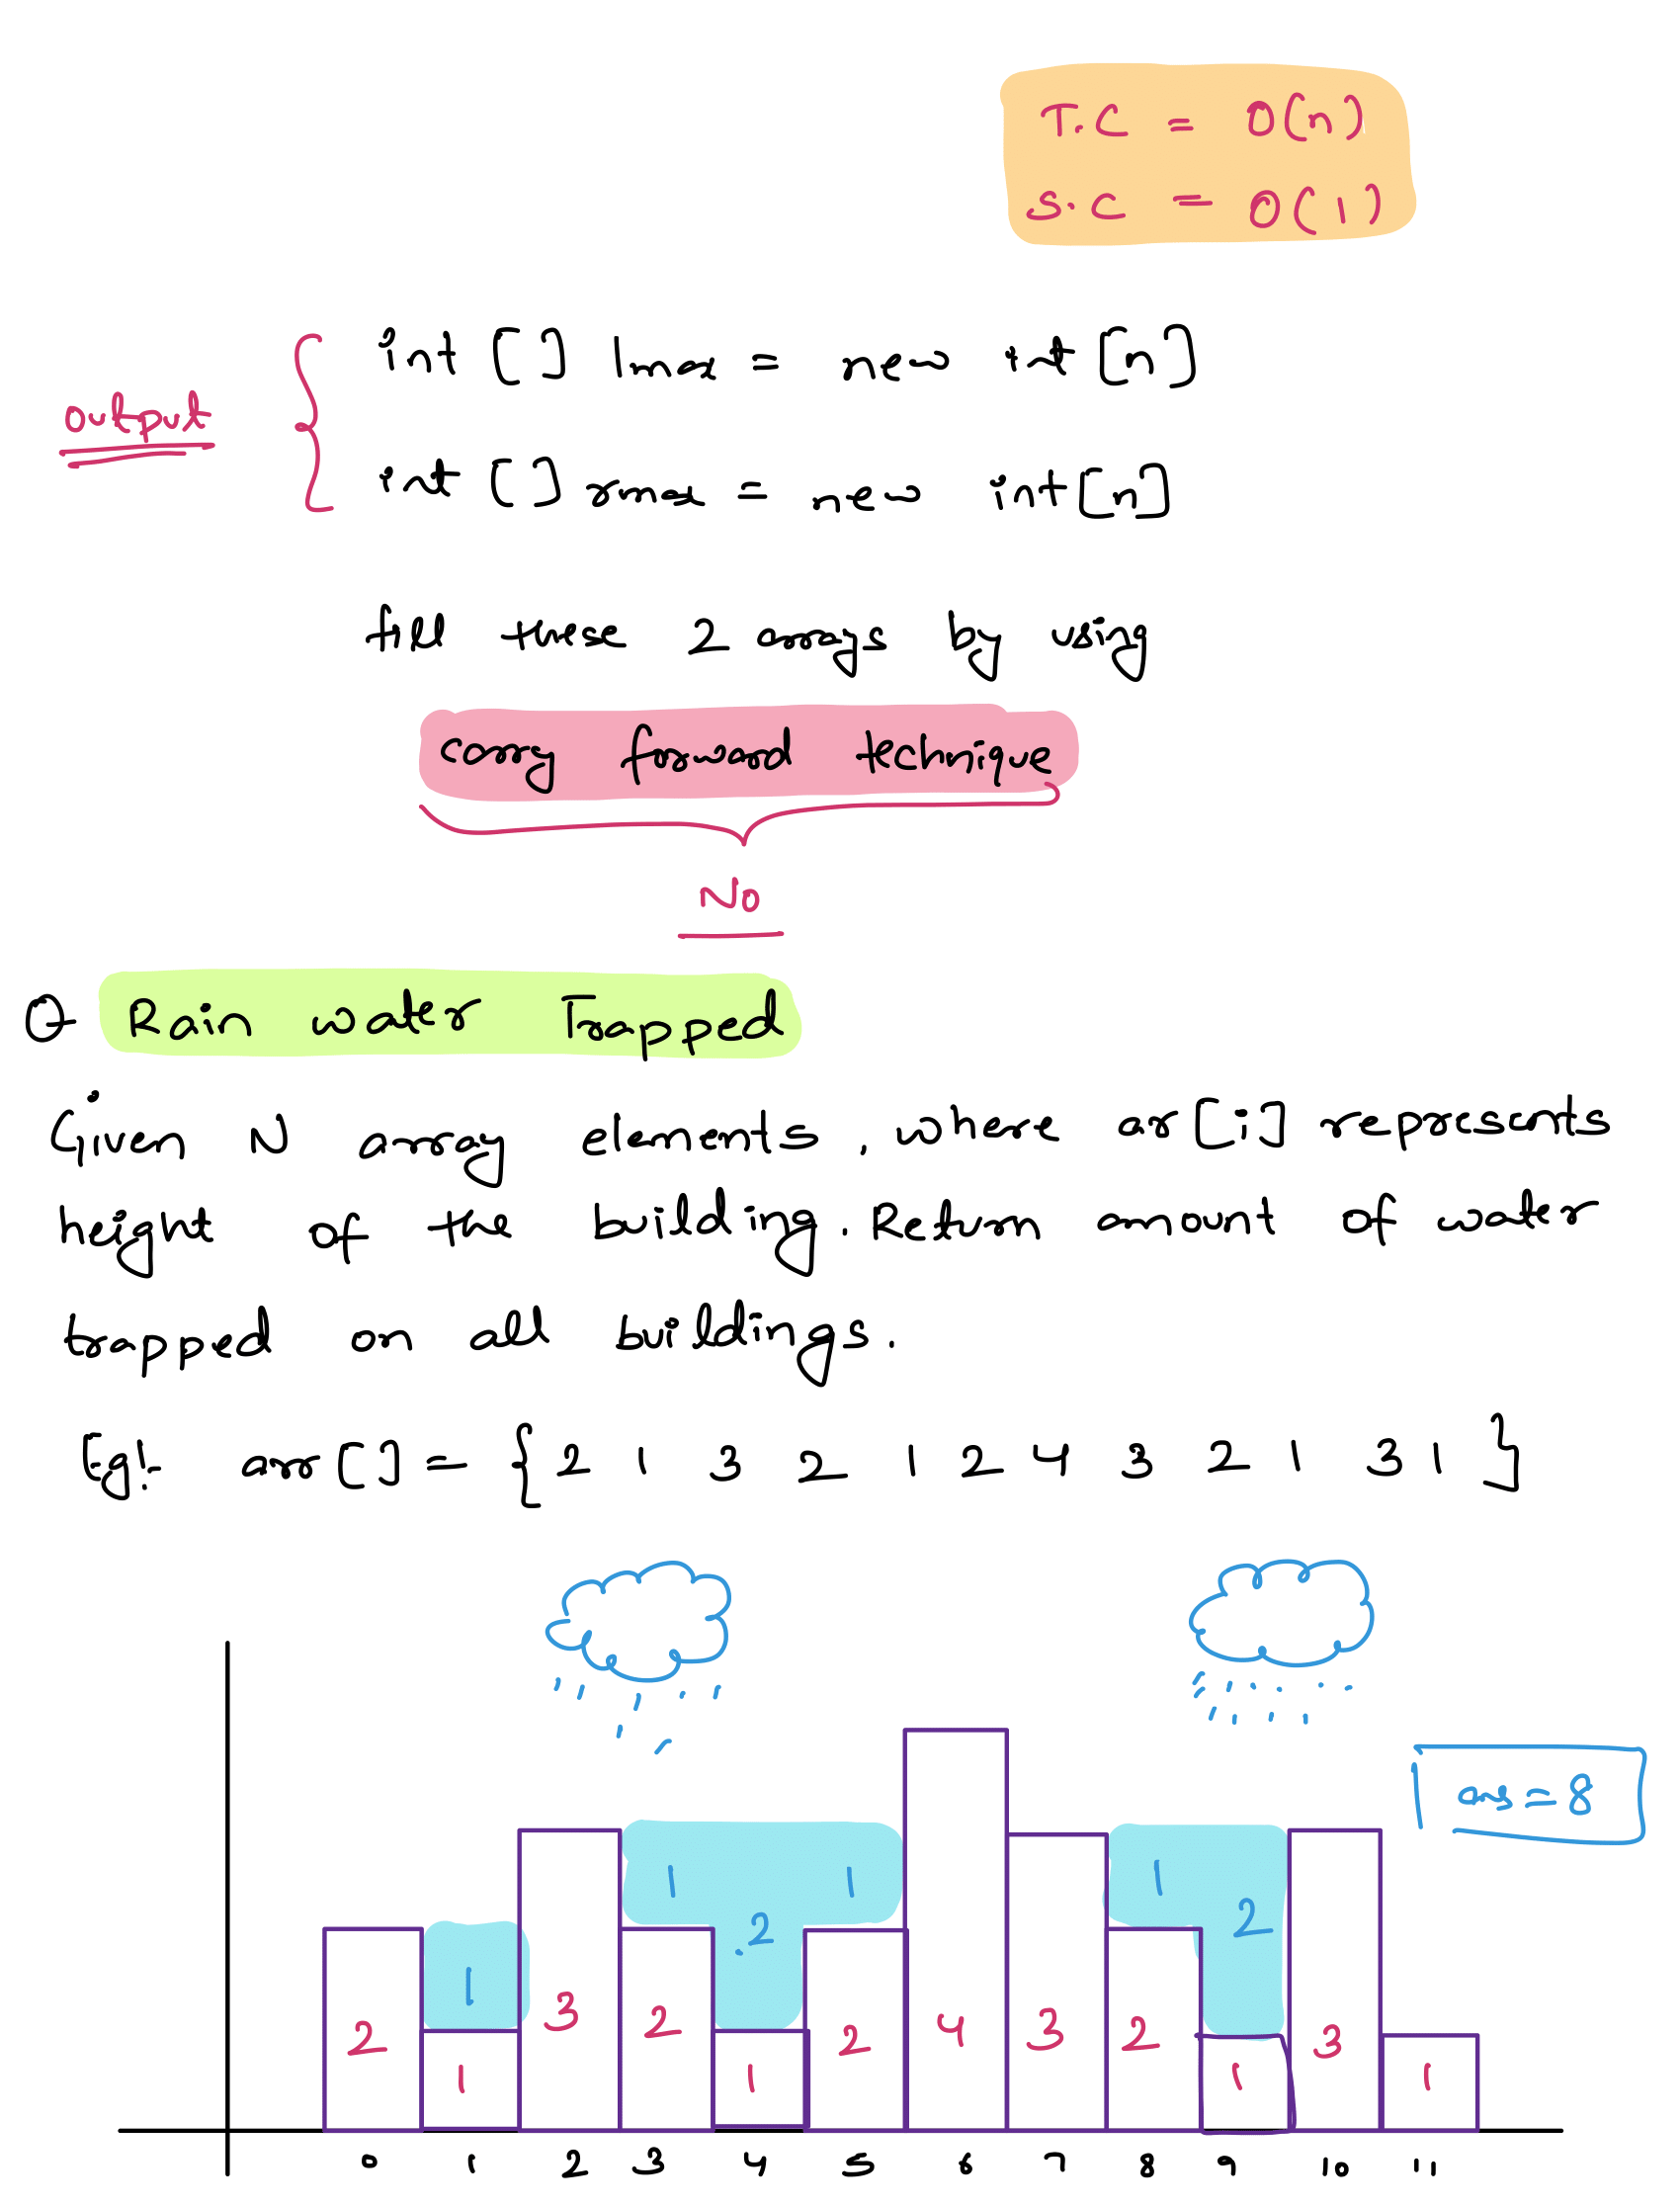 T.C = O(n)
S.C = O(1)
int [] lmax = new int [n]
output
int [] rmax = new int[n]
fill these 2 arrays by using
carry forward technique
No
Q Rain water Trapped
Given N array elements, where ar[i] represents
height of the building. Return amount of water
trapped on all buildings.
Eg:- arr[] = { 2 1 3 2 1 2 4 3 2 1 3 1 }
ans = 8
1 1 1
2 2
1
2 1 3 2 1 2 4 3 2 1 3 1
0 1 2 3 4 5 6 7 8 9 10 11